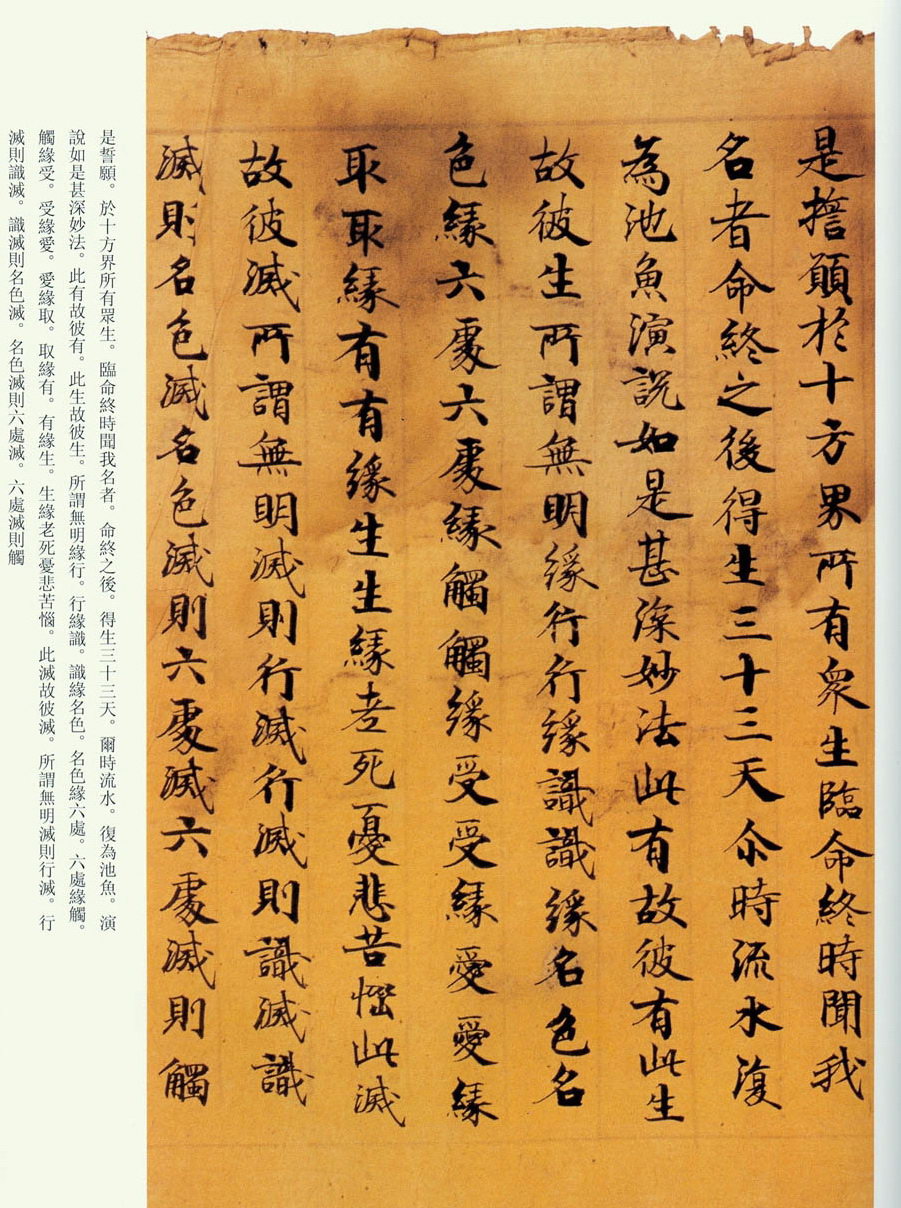 是誓願於十方界所有眾生臨命終時聞我
名者命終之後得生三十三天尒時流水復
為池魚演說如是甚深妙法此有故彼有此生
故彼生所謂無明緣行行緣識識緣名色名
色緣六處六處緣觸觸緣受受緣愛愛緣
取取緣有有緣生生緣老死憂悲苦惱此滅
故彼滅所謂無明滅則行滅行滅則識滅識
滅則名色滅名色滅則六處滅六處滅則觸
是誓願。於十方界所有眾生。臨命終時聞我名者。命終之後。得生三十三天。爾時流水。復為池魚。演
說如是甚深妙法。此有故彼有。此生故彼生。所謂無明緣行。行緣識。識緣名色。名色緣六處。六處緣觸。
觸緣受。受緣愛。愛緣取。取緣有。有緣生。生緣老死憂悲苦惱。此滅故彼滅。所謂無明滅則行滅。行
滅則識滅。識滅則名色滅。名色滅則六處滅。六處滅則觸